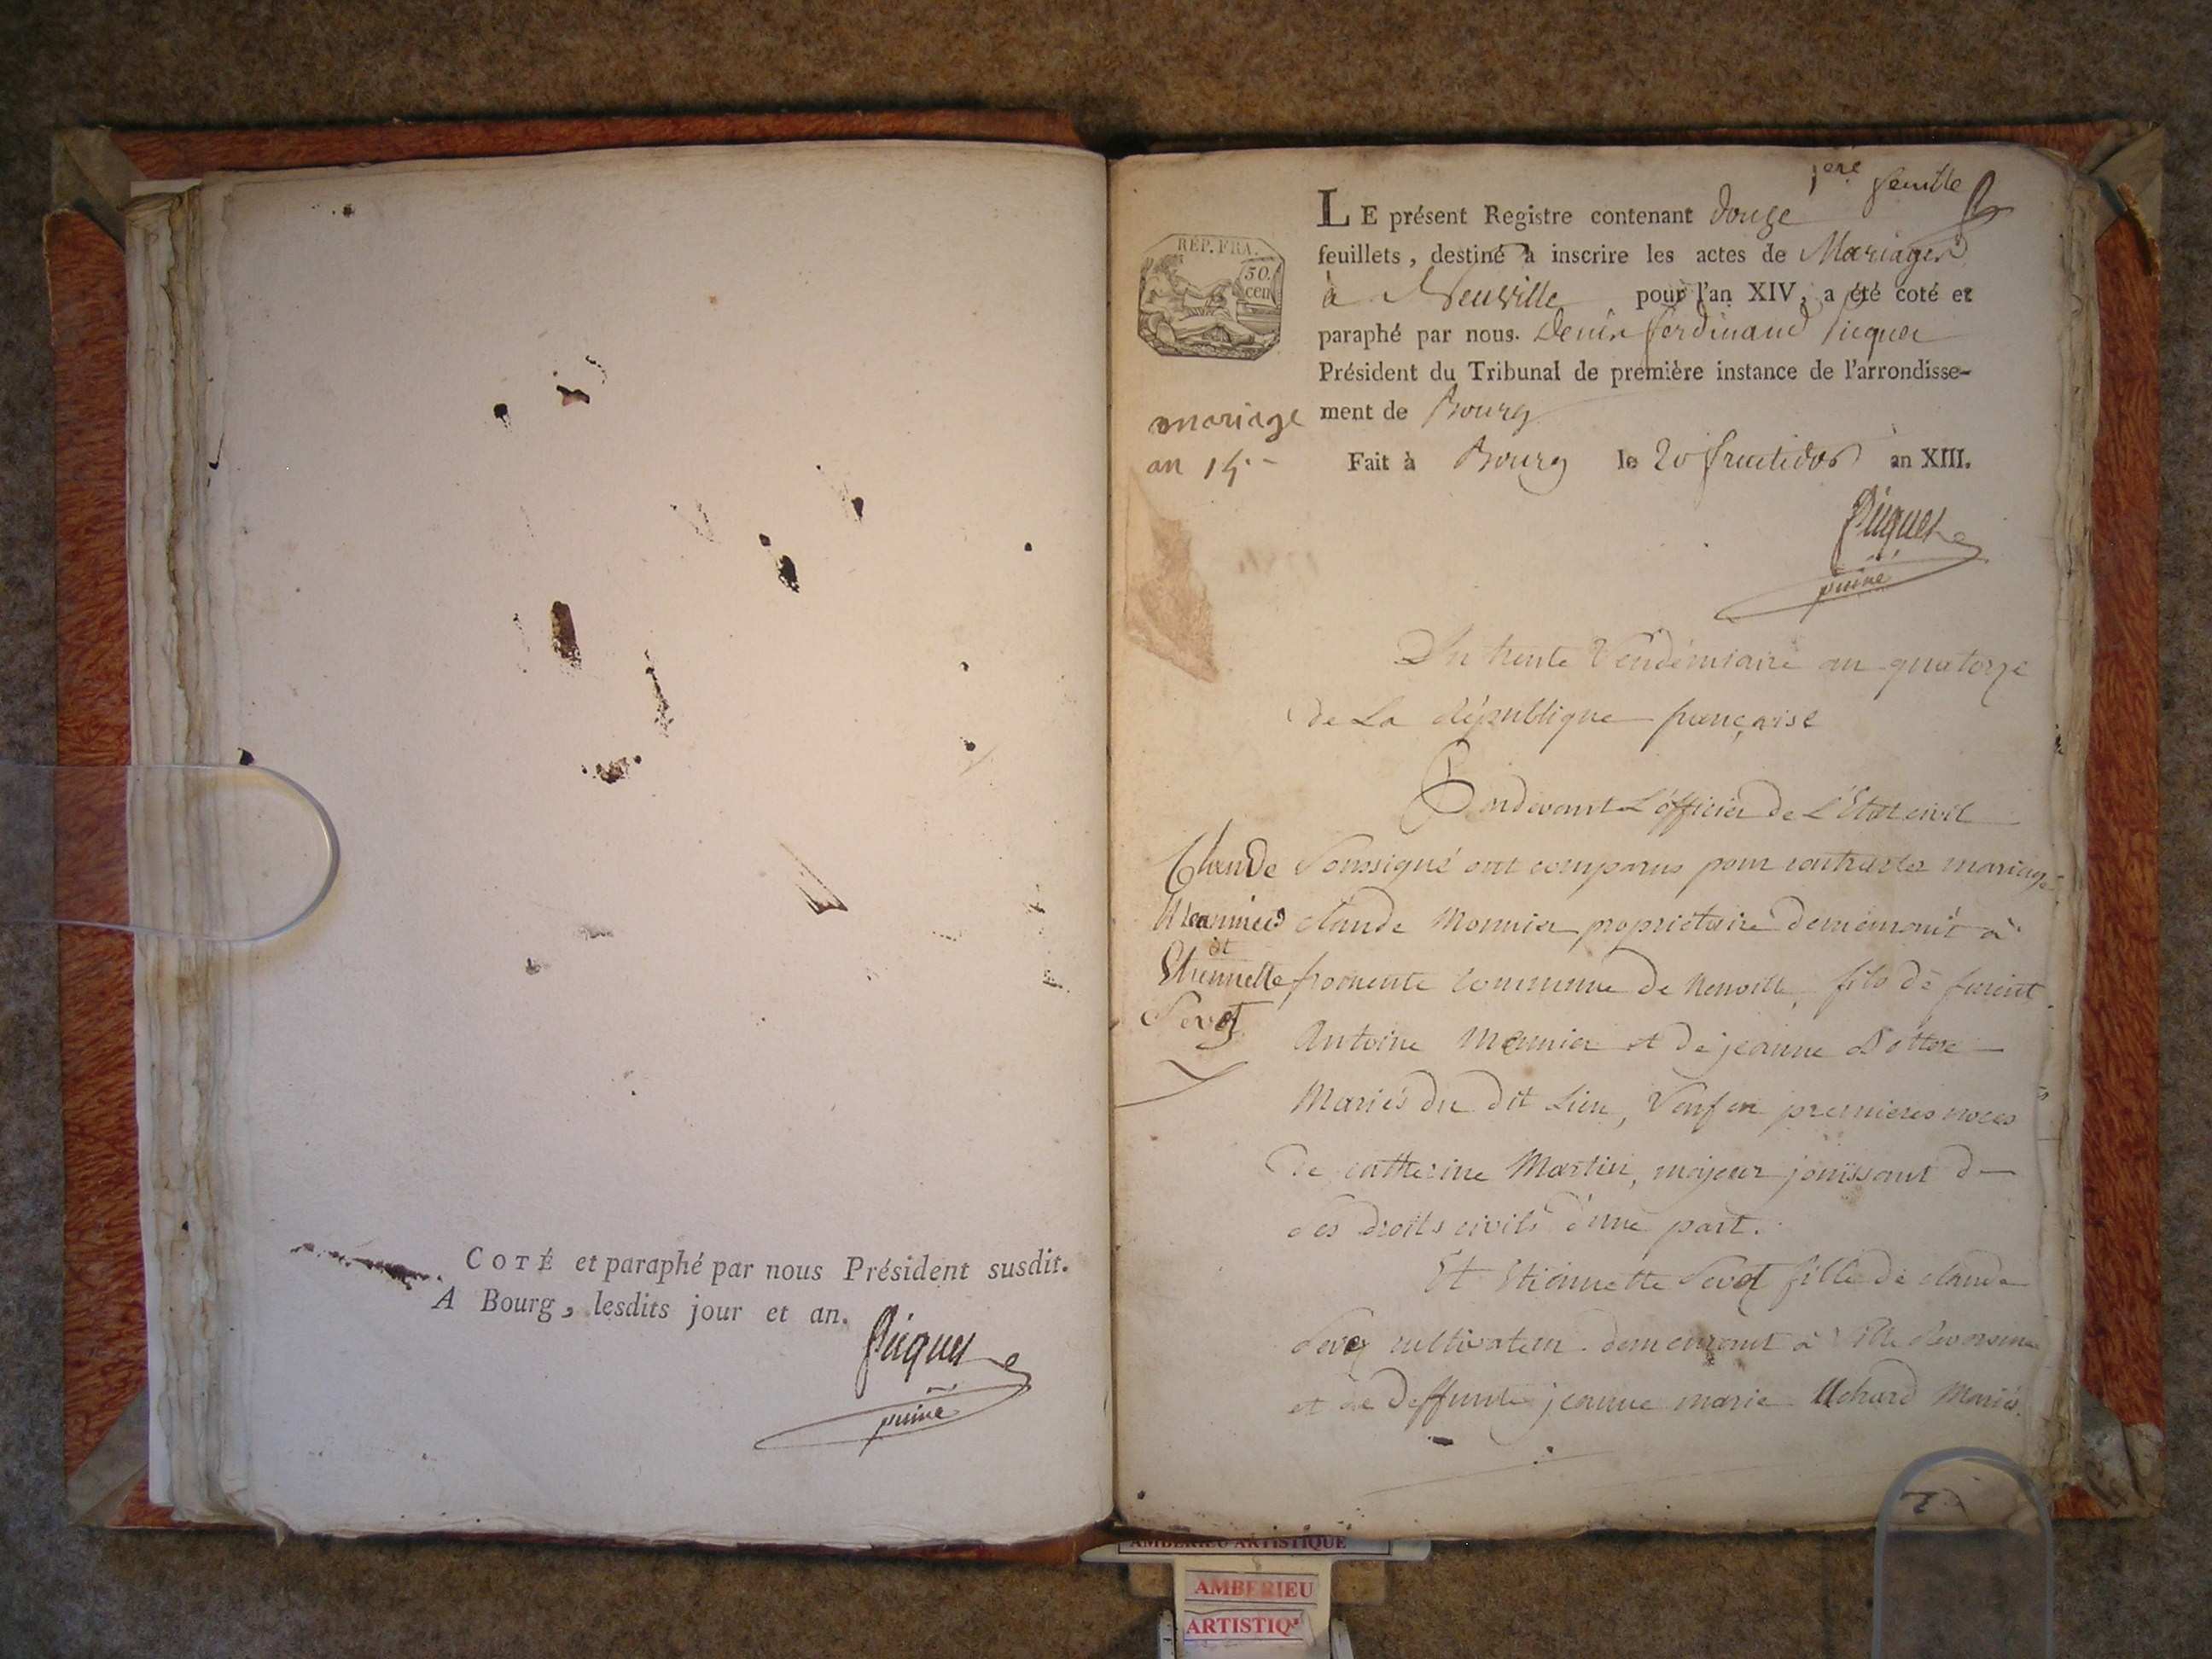 COTÉ et paraphé par nous Président susdit.
A Bourg, lesdits jour et an.
Picquet
puiné
1ere feuille
REP. FRA.
50
cen
LE présent Registre contenant douze
feuillets, destiné à inscrire les actes de Mariages
à Neuville pour l'an XIV, a été coté et
paraphé par nous. Denis ferdinand Picquet
Président du Tribunal de première instance de l'arrondisse-
ment de Bourg
Fait à Bourg le 20 fructidor an XIII.
Picquet
puiné
mariage
an 14
Du trente Vendémiaire an quatorze
de La république française
Pardevant L'officier de L'Etat civil
Soussigné ont comparus pour contracter mariage
claude Monnier propriétaire demeurant à
fromente commune de Neuville, fils de
Antoine Monnier et de jeanne
Mariés du dit Lieu, Veuf en premieres noces
de catherine Martin, majeur jouissant de
ses droits civils d'une part.
Et Etiennette Sevoz fille de claude
Sevoz cultivateur demeurant à Ville Reversure
et de deffunte jeanne marie Uchard Mariés
Claude
Monnier
et
Etiennette
Sevoz
AMBERIEU ARTISTIQUE
AMBERIEU
ARTISTIQ